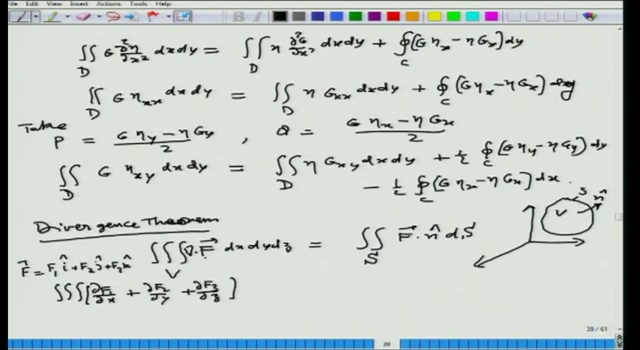 ∬_D G ∂²η/∂x² dxdy = ∬_D η ∂²G/∂x² dxdy + ∮_C (Gη_x − ηG_x) dy
∬_D G η_xx dxdy = ∬_D η G_xx dxdy + ∮_C (Gη_x − ηG_x) dy
Take P = (Gη_y − ηG_y)/2 , Q = (Gη_x − ηG_x)/2
∬_D G η_xy dxdy = ∬_D η G_xy dxdy + ½ ∮_C (Gη_y − ηG_y) dy
− ½ ∮_C (Gη_x − ηG_x) dx.
S n̂
V
Divergence Theorem
∭_V ∇·F⃗ dxdydz = ∬_S F⃗·n̂ dS
F⃗ = F₁î + F₂ĵ + F₃k̂
∭[∂F₁/∂x + ∂F₂/∂y + ∂F₃/∂z]
29 / 61
29